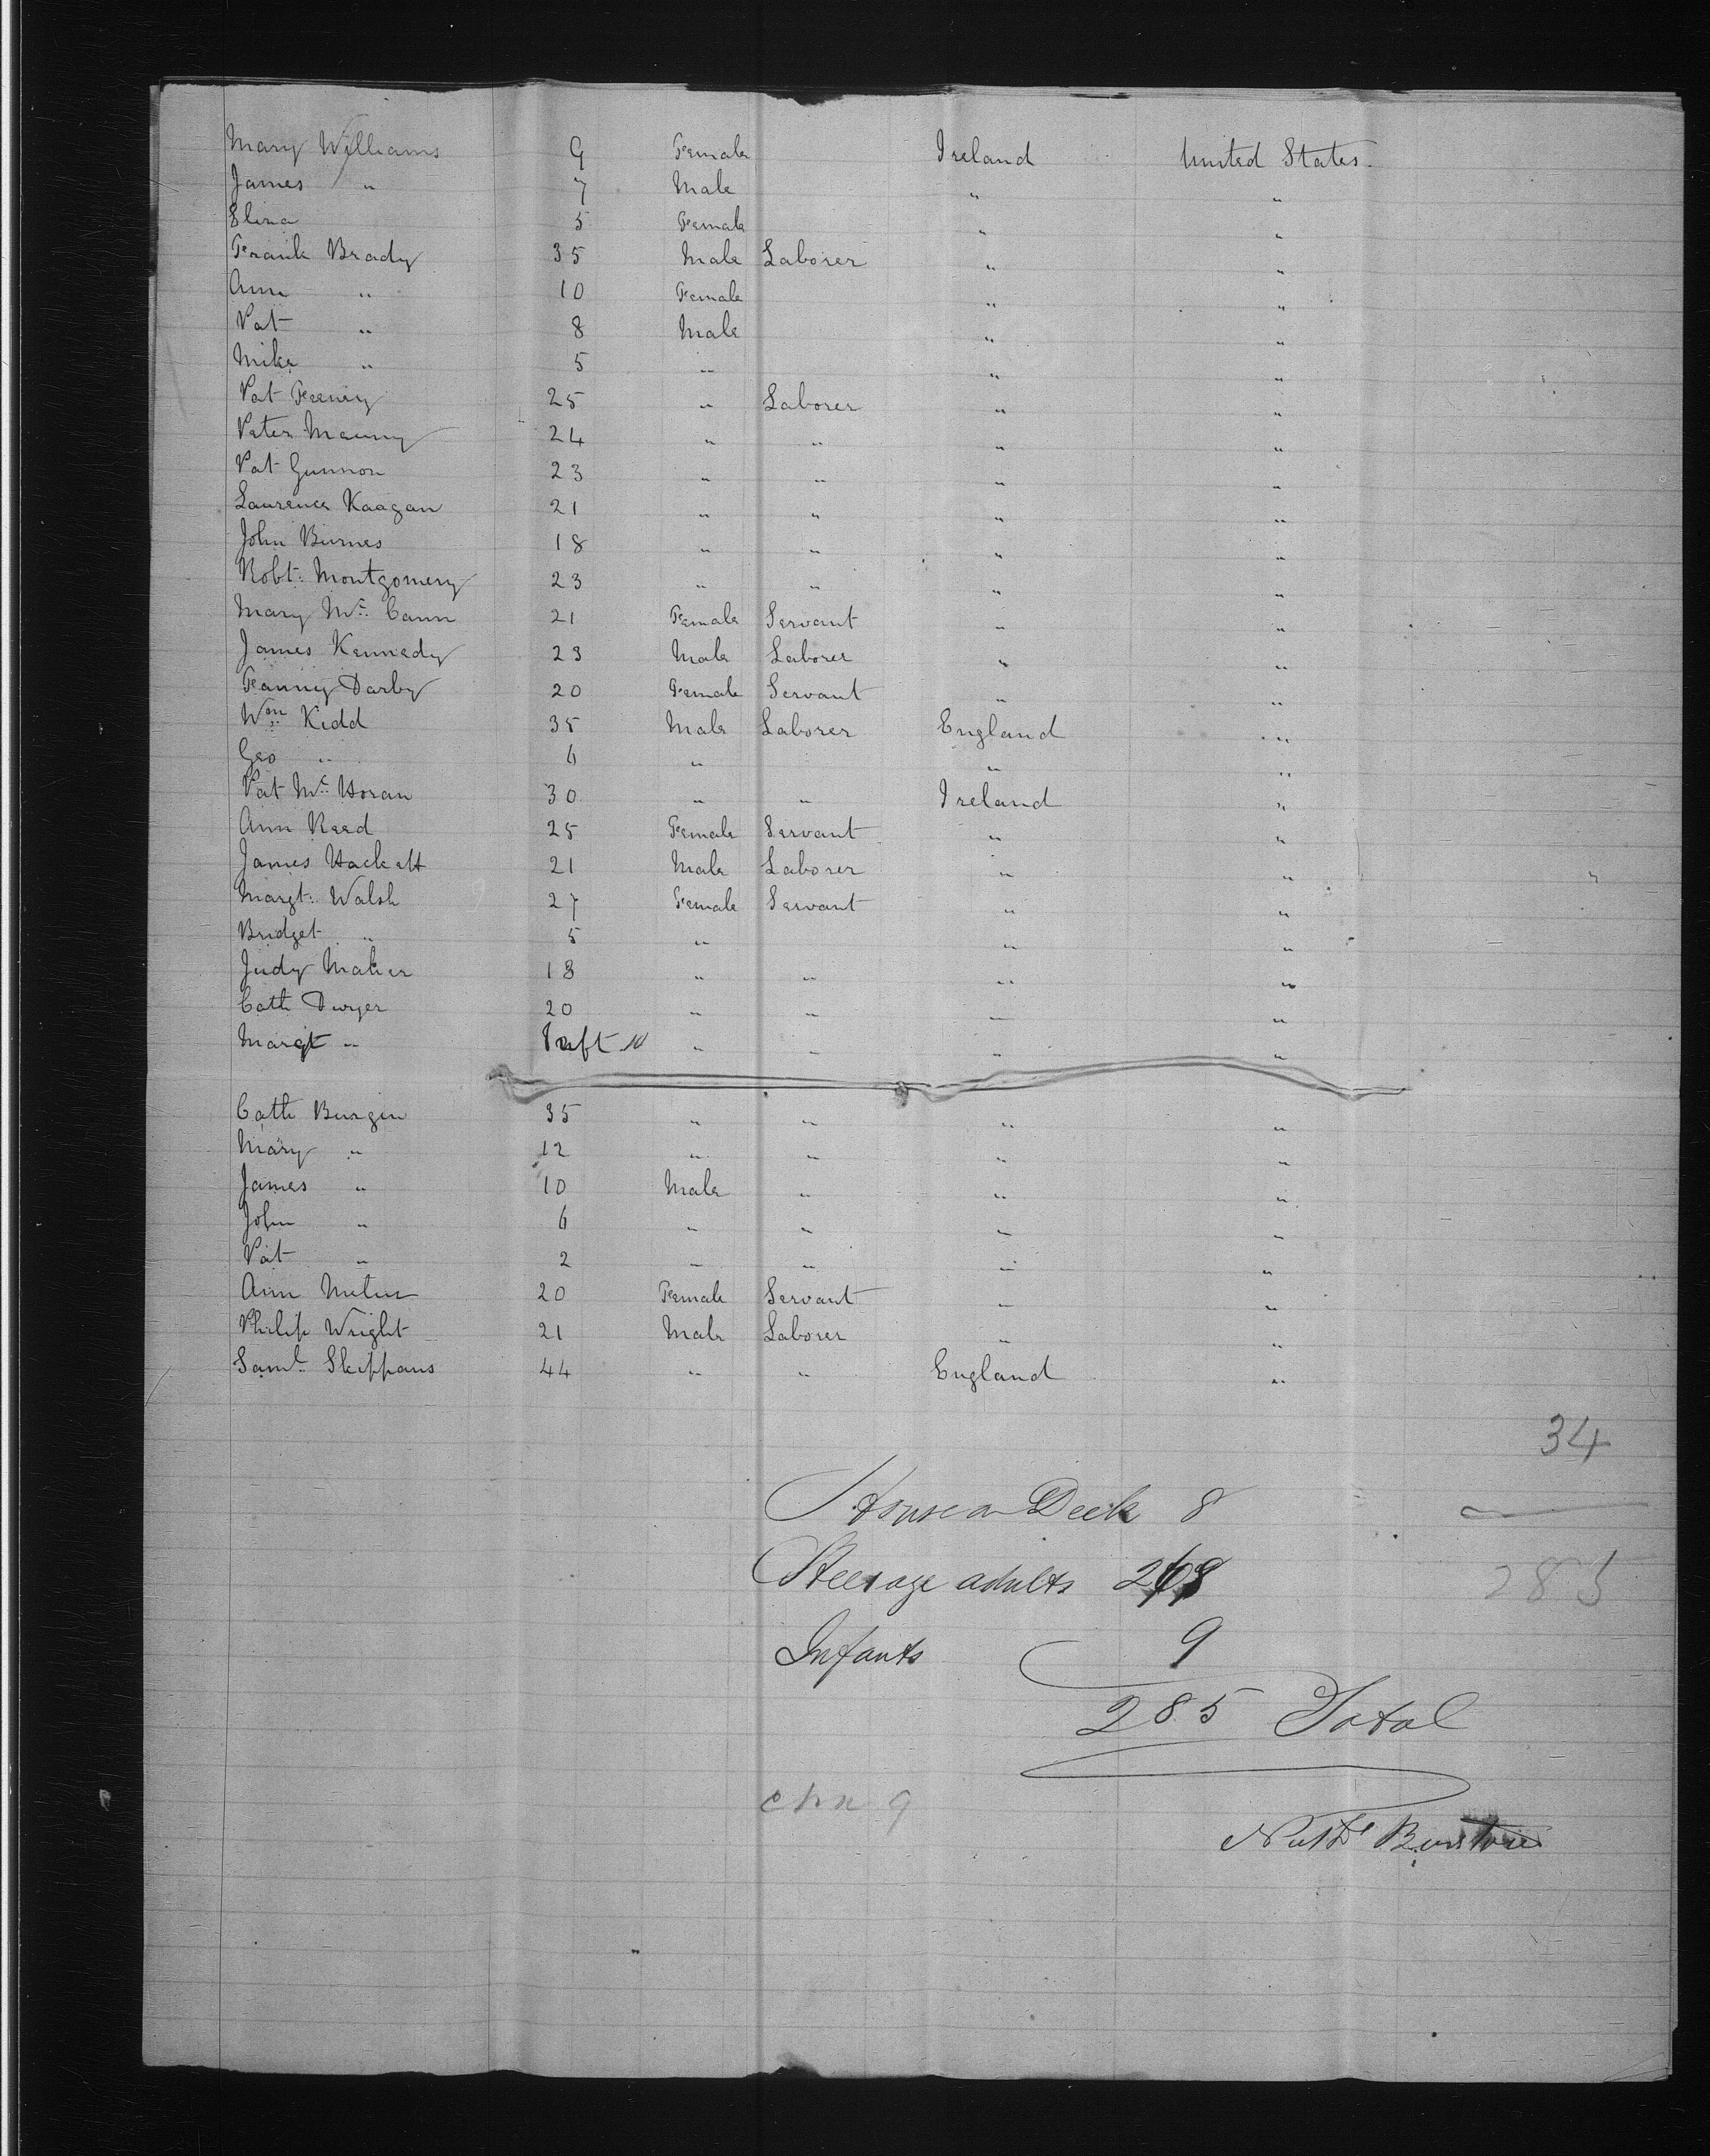 Mary Williams 9 Female Ireland United States
James " 7 Male " "
Eliza 5 Female " "
Frank Brady 35 Male Laborer " "
Ann " 10 Female " "
Pat " 8 Male " "
Mike " 5 " " "
Pat Feeney 25 " Laborer " "
Peter 24 " " " "
Pat Gunnon 23 " " " "
Laurence Kaagan 21 " " " "
John Burnes 18 " " " "
Robt: Montgomery 23 " " " "
Mary Mc Cann 21 Female Servant " "
James Kennedy 23 Male Laborer " "
Fanny Darby 20 Female Servant " "
Wm Kidd 35 Male Laborer England "
Geo " 6 " " "
Pat Mc Horan 30 " " Ireland "
Ann Reed 25 Female Servant " "
James Hackett 21 Male Laborer " "
Margt: Walsh 27 Female Servant " "
Bridget " 5 " " "
Judy Maher 18 " " " "
Cath Dwyer 20 " " " "
Margt " Inft " " " "
Cath Burgin 35 " " " "
Mary " 12 " " " "
James " 10 Male " " "
John " 6 " " " "
Pat " 2 " " " "
Ann 20 Female Servant " "
Philip Wright 21 Male Laborer " "
Saml Skippans 44 " " England "
34
House on Deck 8
Steerage adults 268
285
Infants 9
285 Total
chn 9